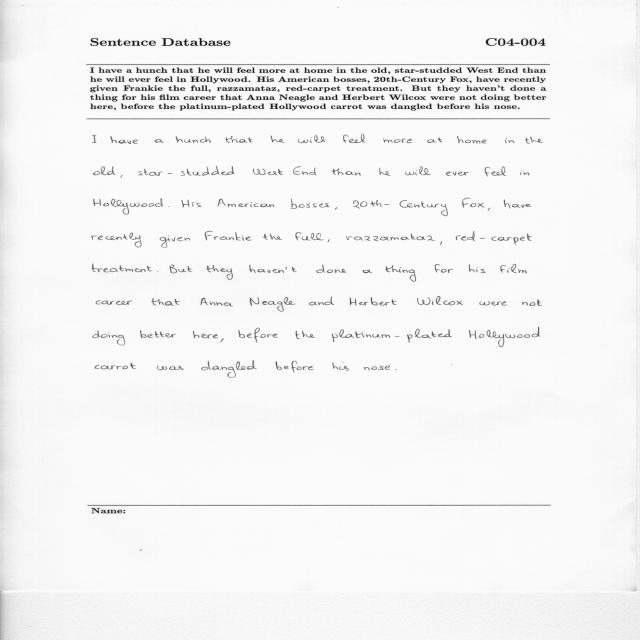 Sentence Database C04-004
I have a hunch that he will feel more at home in the old, star-studded West End than
he will ever feel in Hollywood. His American bosses, 20th-Century Fox, have recently
given Frankie the full, razzamataz, red-carpet treatment. But they haven't done a
thing for his film career that Anna Neagle and Herbert Wilcox were not doing better
here, before the platinum-plated Hollywood carrot was dangled before his nose.
I have a hunch that he will feel more at home in the
old, star-studded West End than he will ever feel in
Hollywood. His American bosses, 20th-Century Fox, have
recently given Frankie the full, razzamataz, red-carpet
treatment. But they haven't done a thing for his film
career that Anna Neagle and Herbert Wilcox were not
doing better here, before the platinum-plated Hollywood
carrot was dangled before his nose.
Name: